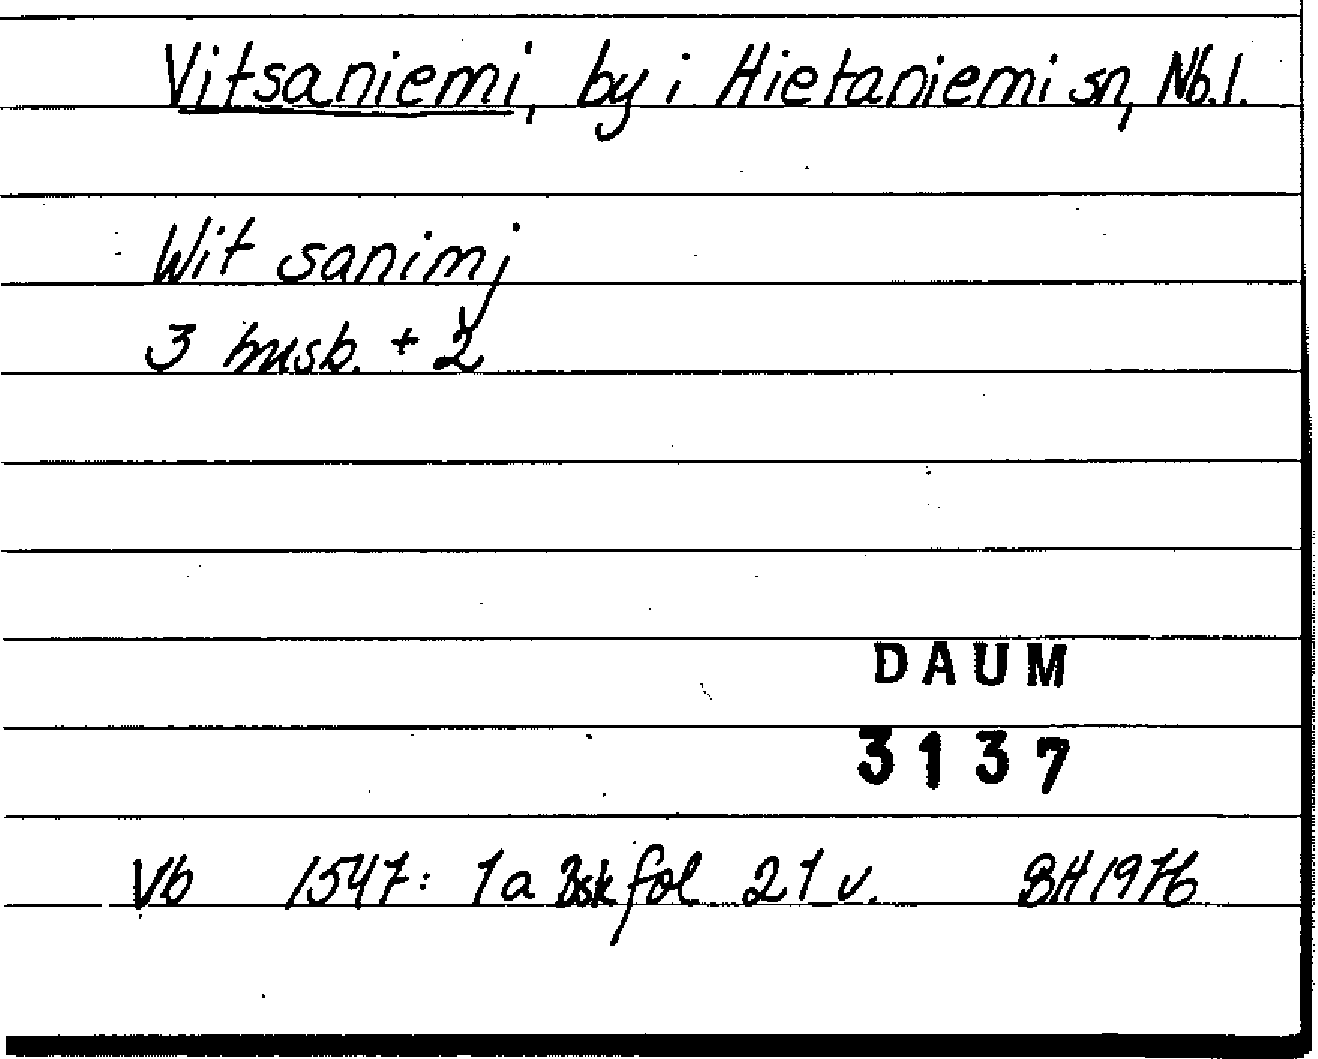 Vitsaniemi, by i Hietaniemi sn, Nb.l.
Wit sanimj
3 husb. + 2
DAUM
3137
Vb 1547: 1a Bsk fol 21 v. BH 1976